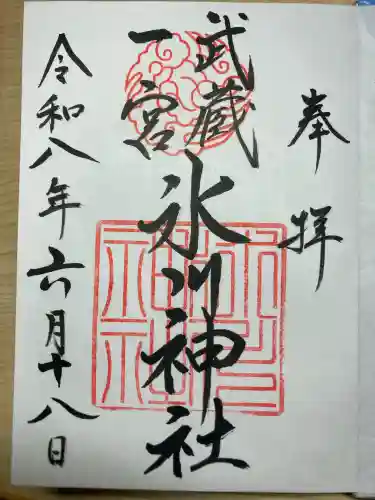 奉拝
武蔵
一宮
氷川神社
令和八年六月十八日